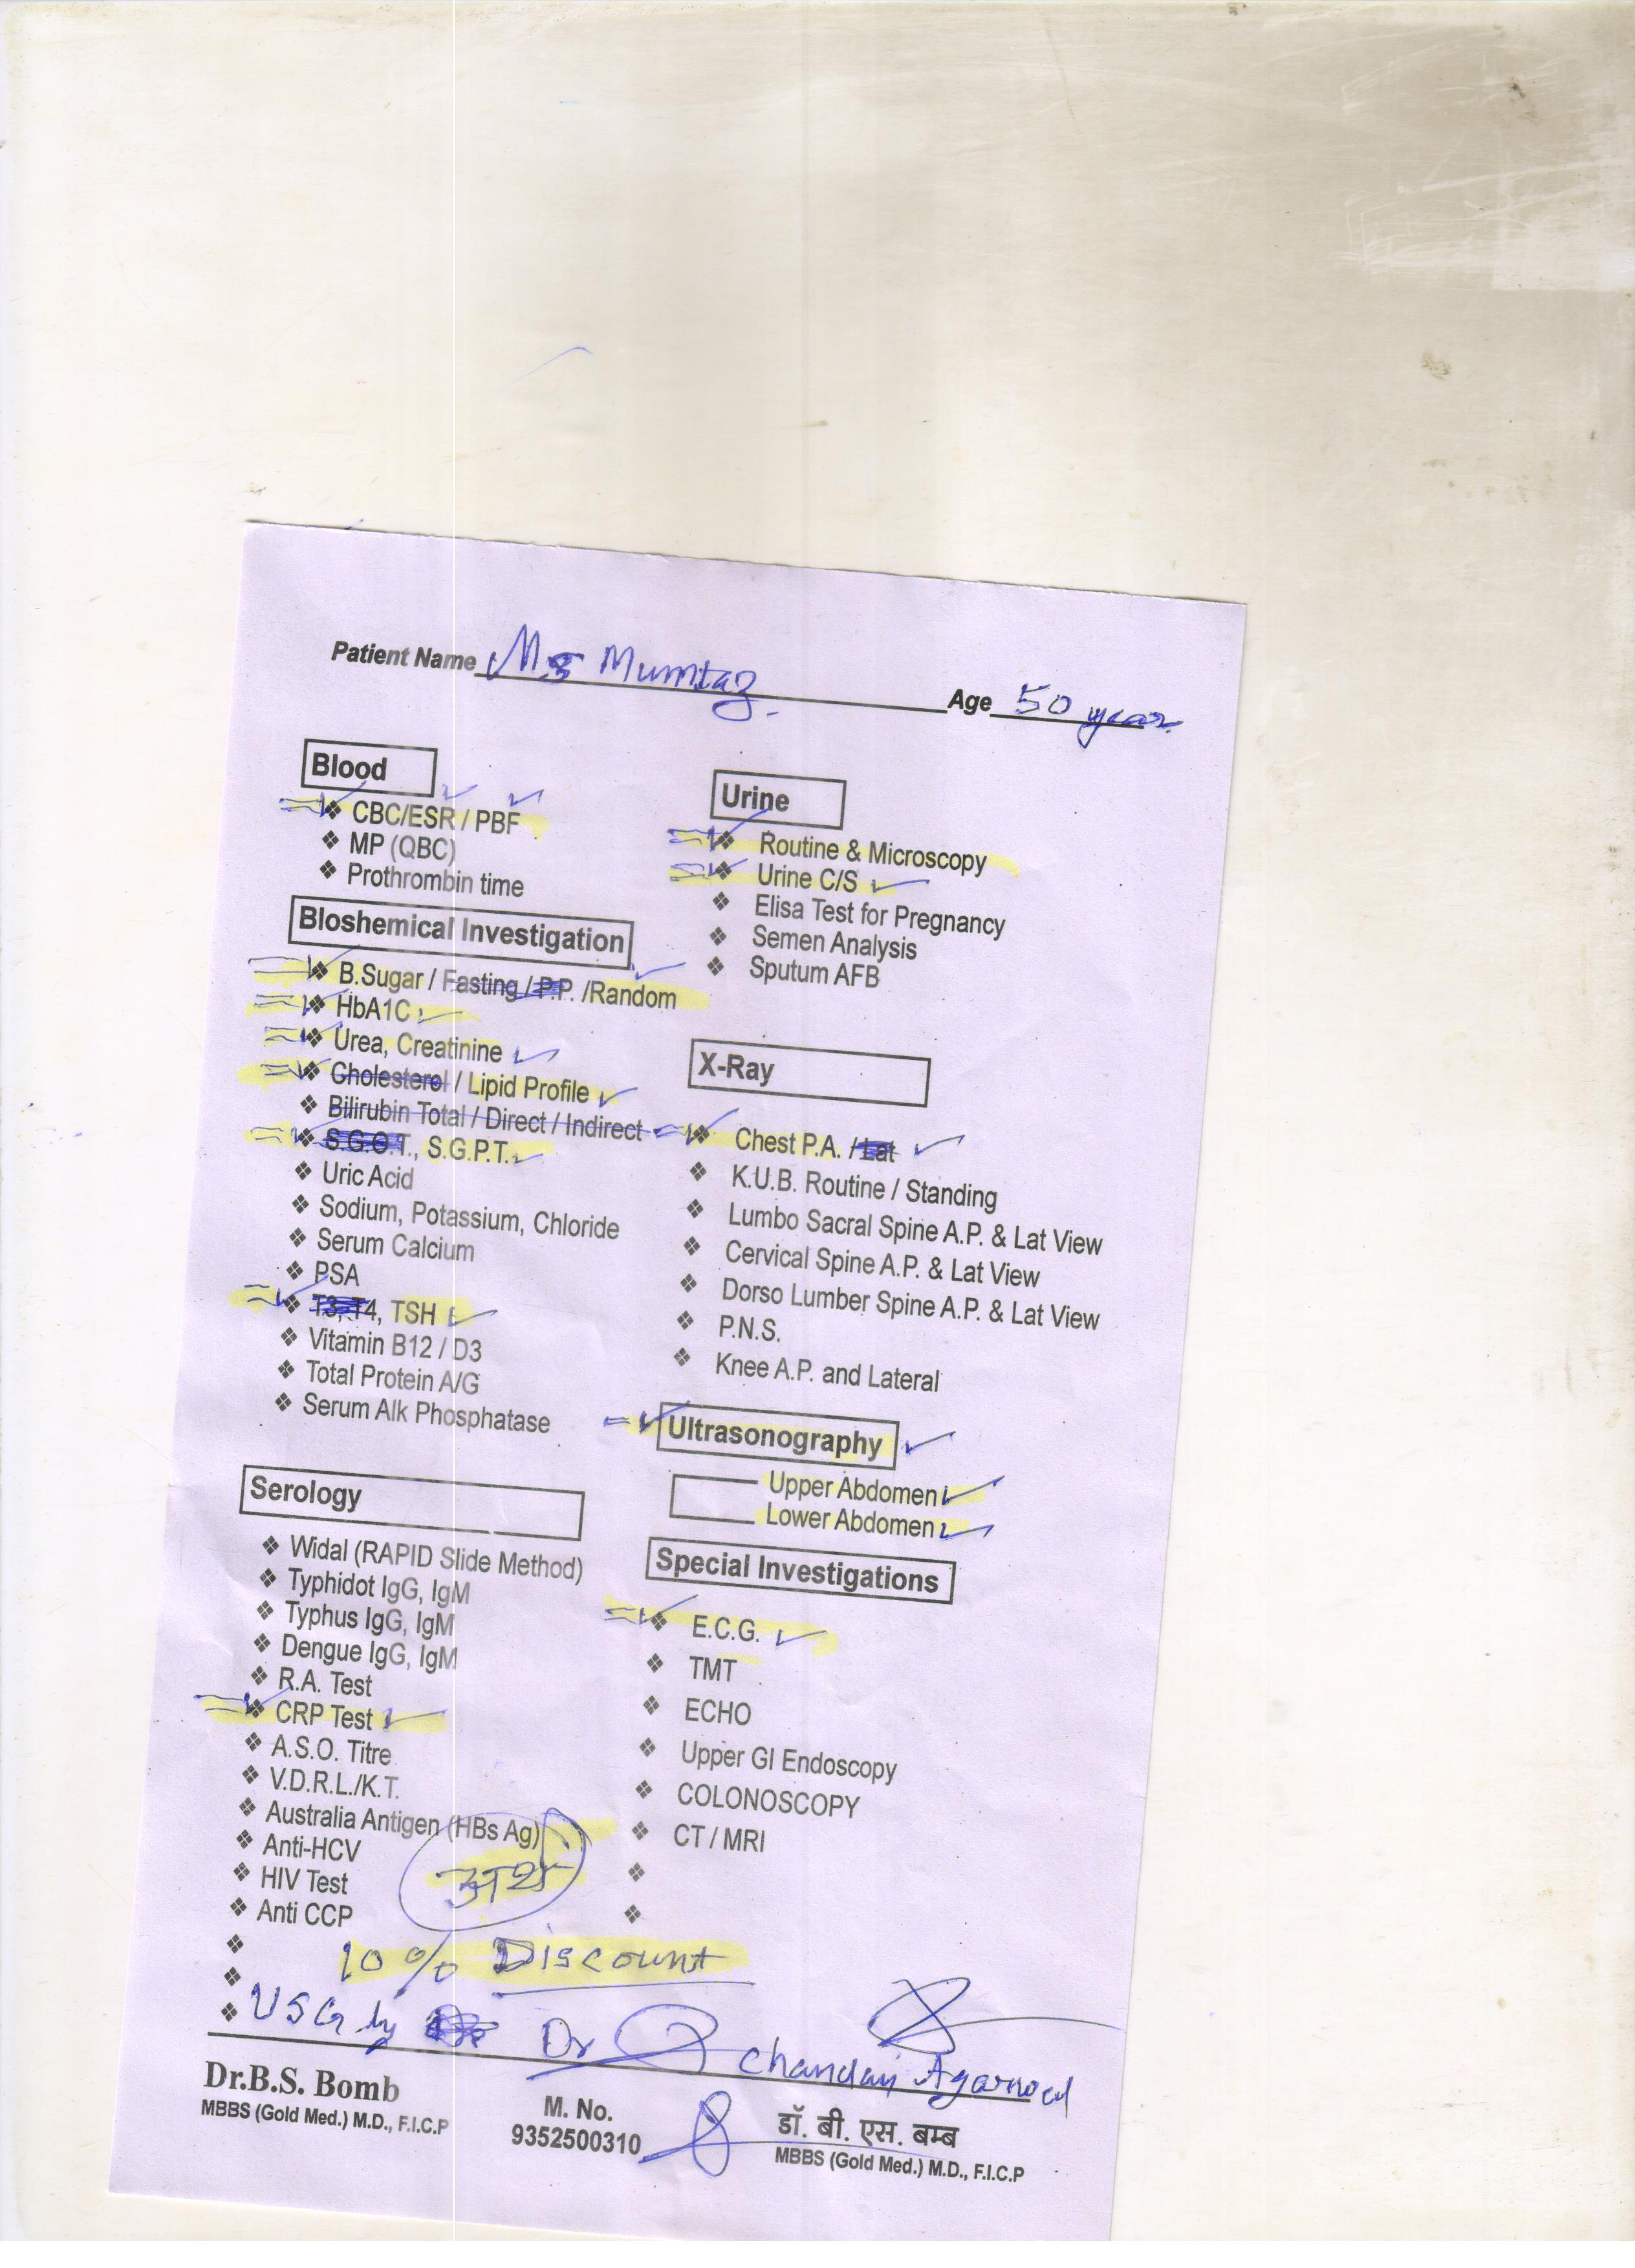 Patient Name Ms Mumtaz Age 50 year
Blood
❖ CBC/ESR / PBF
❖ MP (QBC)
❖ Prothrombin time
Bloshemical Investigation
❖ B.Sugar / Fasting / P.P. /Random
❖ HbA1C
❖ Urea, Creatinine
❖ Cholesterol / Lipid Profile
❖ Bilirubin Total / Direct / Indirect
❖ S.G.O.T., S.G.P.T.
❖ Uric Acid
❖ Sodium, Potassium, Chloride
❖ Serum Calcium
❖ PSA
❖ T3, T4, TSH
❖ Vitamin B12 / D3
❖ Total Protein A/G
❖ Serum Alk Phosphatase
Serology
❖ Widal (RAPID Slide Method)
❖ Typhidot IgG, IgM
❖ Typhus IgG, IgM
❖ Dengue IgG, IgM
❖ R.A. Test
❖ CRP Test
❖ A.S.O. Titre
❖ V.D.R.L./K.T.
❖ Australia Antigen (HBs Ag)
❖ Anti-HCV
❖ HIV Test
❖ Anti CCP
Urine
❖ Routine & Microscopy
❖ Urine C/S
❖ Elisa Test for Pregnancy
❖ Semen Analysis
❖ Sputum AFB
X-Ray
❖ Chest P.A. / Lat
❖ K.U.B. Routine / Standing
❖ Lumbo Sacral Spine A.P. & Lat View
❖ Cervical Spine A.P. & Lat View
❖ Dorso Lumber Spine A.P. & Lat View
❖ P.N.S.
❖ Knee A.P. and Lateral
Ultrasonography
Upper Abdomen
Lower Abdomen
Special Investigations
❖ E.C.G.
❖ TMT
❖ ECHO
❖ Upper GI Endoscopy
❖ COLONOSCOPY
❖ CT / MRI
10% Discount
USG by Dr Chandan Agarwal
Dr.B.S. Bomb
MBBS (Gold Med.) M.D., F.I.C.P
M. No.
9352500310
डॉ. बी. एस. बम्ब
MBBS (Gold Med.) M.D., F.I.C.P